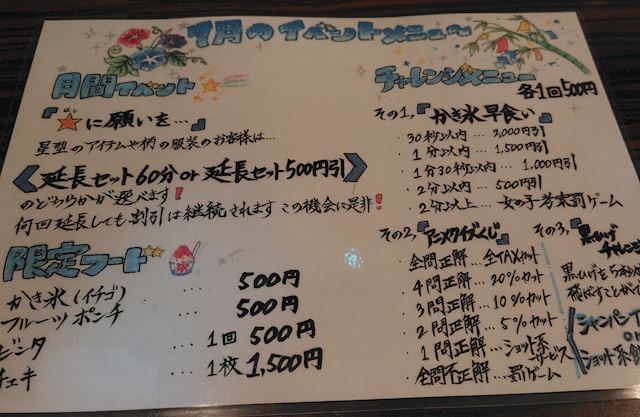 7月のイベントメニュー
月間イベント
『☆に願いを…』
ほし
星型のアイテムや柄の服装のお客様は…
《延長セット60分or延長セット500円引》
のどちらかが選べます!
何回延長しても割引は継続されます この機会に是非!
限定フード
かき氷(イチゴ) … 500円
フルーツポンチ … 500円
ビンタ … 1回 500円
チェキ … 1枚 1,500円
チャレンジメニュー
各1回500円
その1,『かき氷早食い』
・30秒以内… 2,000円引
・1分以内… 1,500円引
・1分30秒以内… 1,000円引
・2分以内… 500円引
・2分以上… 女の子考案罰ゲーム
その2,『アニメクイズくじ』
・全問正解…全TAXカット
・4問正解…20%カット
・3問正解…10%カット
・2問正解…5%カット
・1問正解…ショット系サービス
・全問不正解…罰ゲーム
その3,『黒ひげ
チャレンジ
黒ひげを5秒
飛ばすことが
シャンパン
or
ショット系